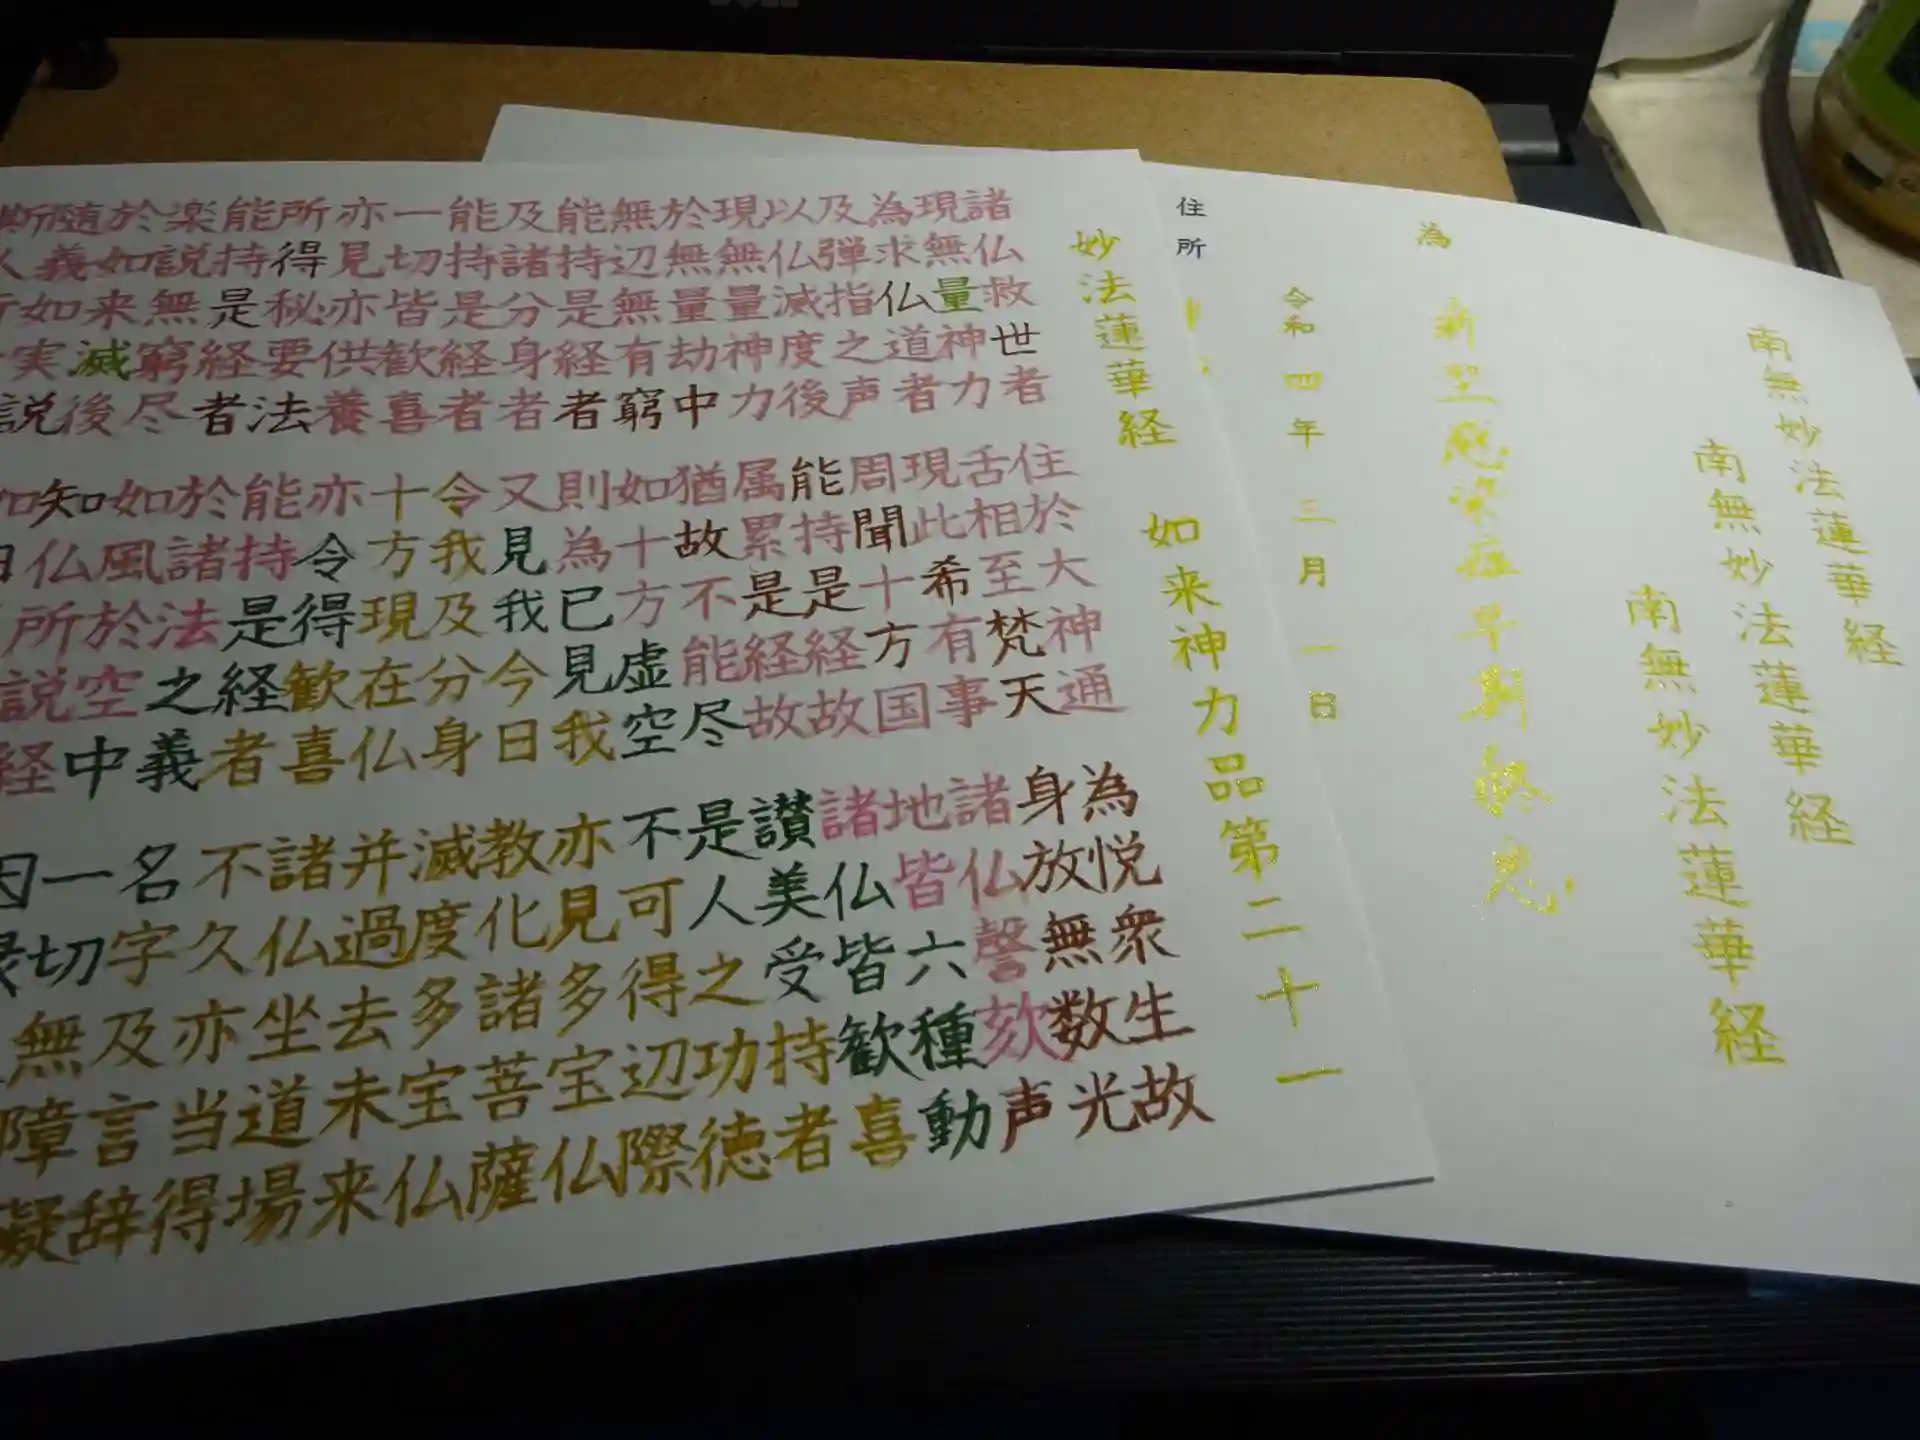 妙法蓮華経 如来神力品第二十一
諸仏救世者 住於大神通 為悦衆生故
現無量神力 舌相至梵天 身放無数光
為求仏道者 現此希有事 諸仏謦欬声
及弾指之声 周聞十方国 地皆六種動
以仏滅度後 能持是経故 諸仏皆歓喜
現無量神力 属累是経故 讃美受持者
於無量劫中 猶持不能尽 是人之功徳
無辺無有窮 如十方虚空 不可得辺際
能持是経者 則為已見我 亦見多宝仏
及諸分身者 又見我今日 教化諸菩薩
能持是経者 令我及分身 滅度多宝仏
一切皆歓喜 十方現在仏 并過去未来
亦見亦供養 亦令得歓喜 諸仏坐道場
所得秘要法 能持是経者 不久亦当得
能持是経者 於諸法之義 名字及言辞
楽説無窮尽 如風於空中 一切無障礙
於如来滅後 知仏所説経 因縁
随義如実説 如日
斯人
南無妙法蓮華経
南無妙法蓮華経
南無妙法蓮華経
為 新型感染症早期終息
令和四年三月一日
住所